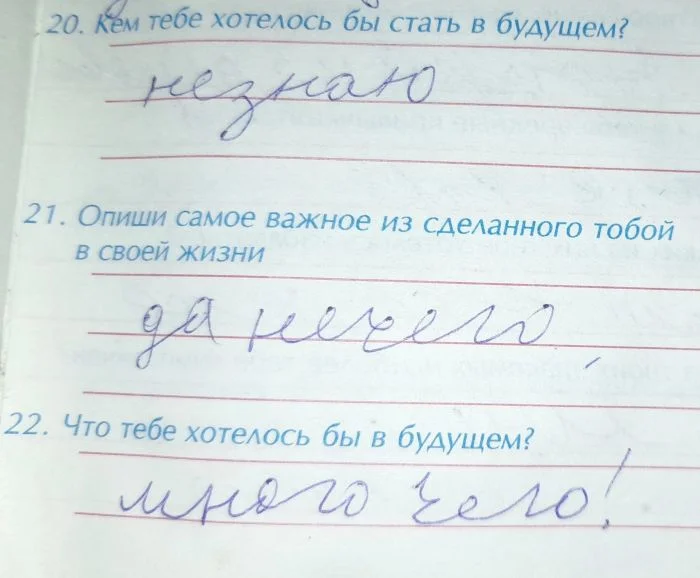 20. Кем тебе хотелось бы стать в будущем?
незнаю
21. Опиши самое важное из сделанного тобой
в своей жизни
да нечего,
22. Что тебе хотелось бы в будущем?
много чего!